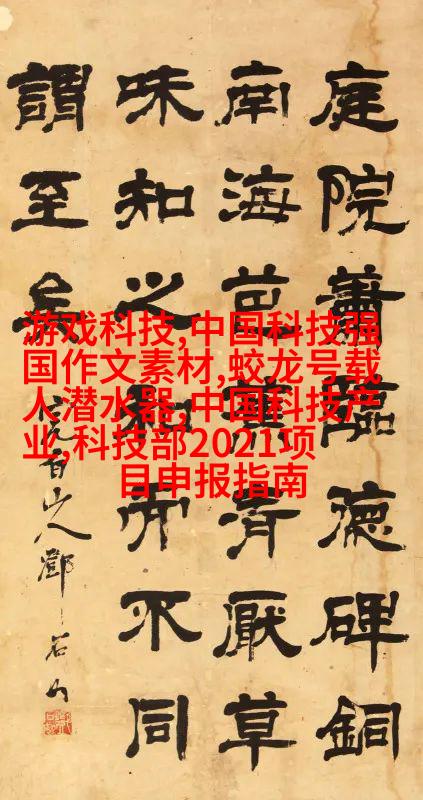 庭院蕭臨德碑銅
南海芭青厭草
味知之不同
謂至矣
完白山人鄧石如
游戏科技,中国科技强
国作文素材,蛟龙号载
人潜水器,中国科技产
业,科技部2021项
目申报指南